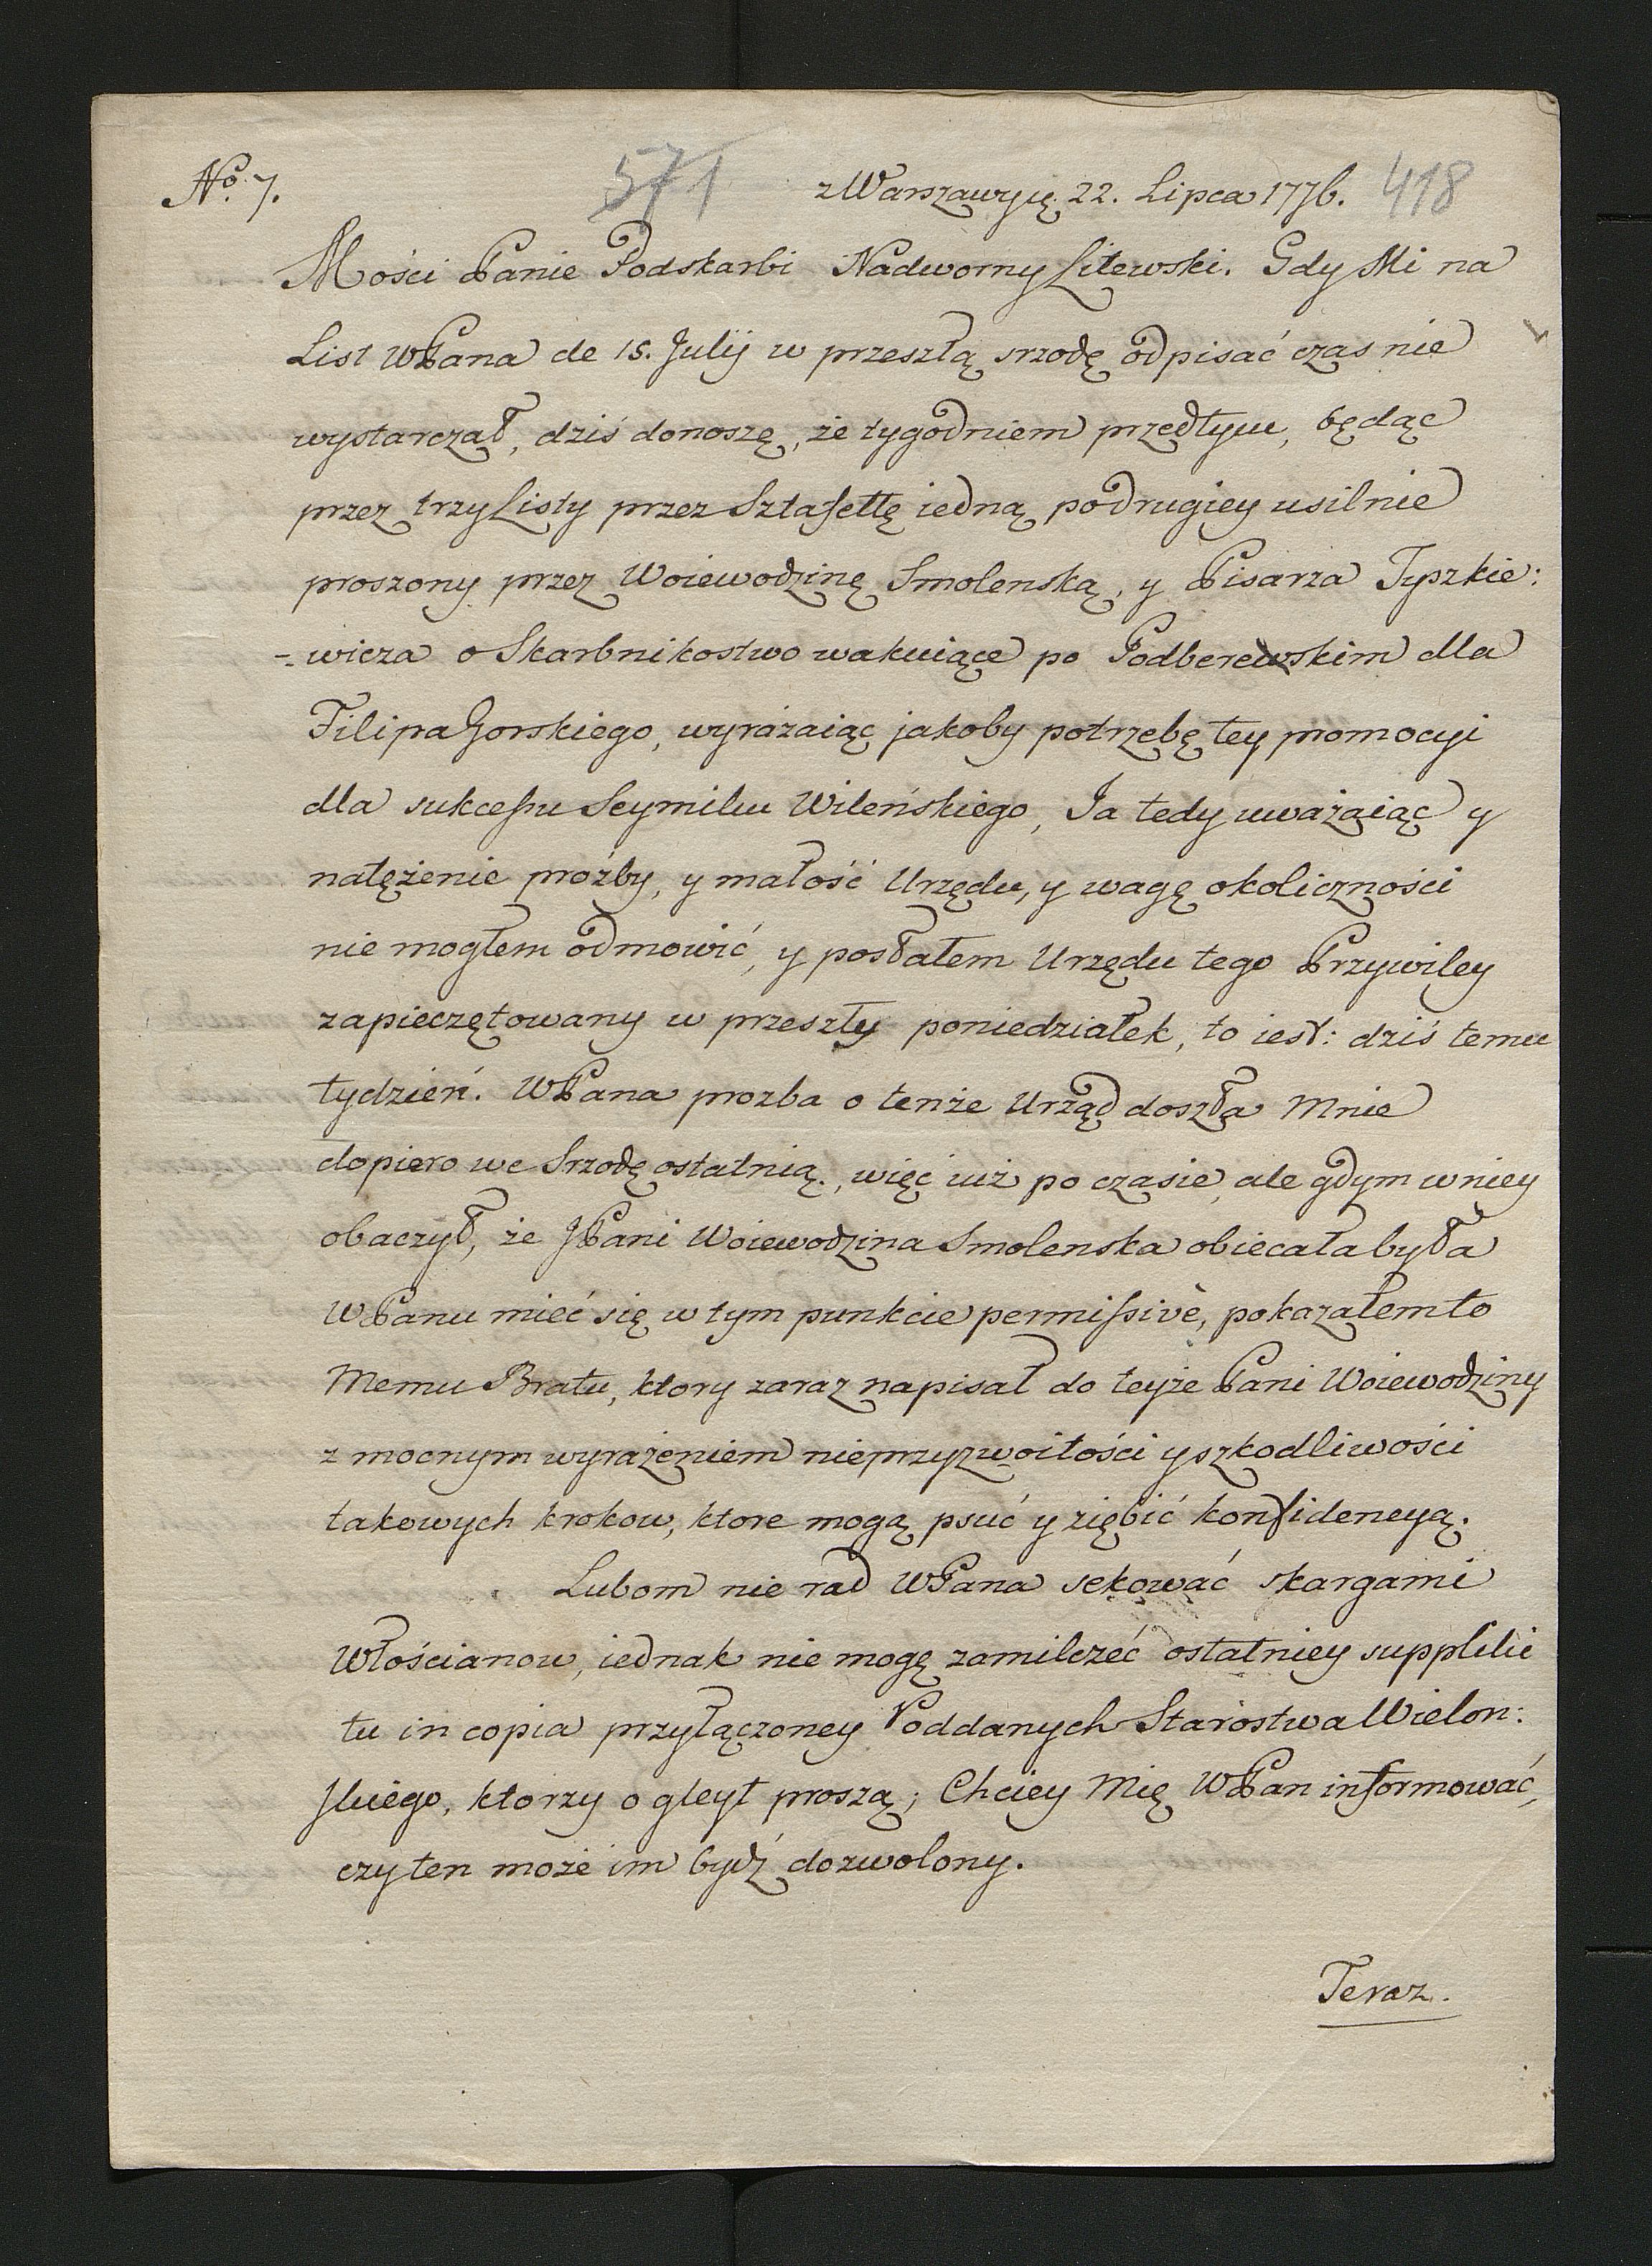 No. 7. 571 z Warszawy ię. 22. Lipca 1776. 418
Mości Panie Podskarbi Nadworny Litewski. Gdy Mi na
List WPana de 15. Julij w przeszłą srzodę odpisać czas nie
wystarczał, dziś donoszę, że tygodniem przedtym, będąc
przez trzy Listy przez Sztafettę iedną po drugiey usilnie
proszony przez Woiewodzinę Smolenską, y Pisarza Tyszkie:
-wicza o Skarbnikostwo wakuiące po Podberewskim dla
Filipa Gorskiego, wyrażaiąc jakoby potrzebę tey promocyi
dla sukcessu Seymiku Wileńskiego, Ja tedy uważaiąc y
natężenie prożby, y małość Urzędu, y wagę okoliczności
nie mogłem odmowić, y posłałem Urzędu tego Przywiley
zapieczętowany w przeszły poniedziałek, to iest: dziś temu
tydzień. WPana prozba o tenże Urząd doszła Mnie
dopiero we Srzodę ostatnią, więc iuż po czasie, ale gdym w niey
obaczył, że JPani Woiewodzina Smolenska obiecała była
WPanu mieć się w tym punkcie permissivè, pokazałem to
Memu Bratu, ktory zaraz napisał do teyże Pani Woiewodziny
z mocnym wyrażeniem nieprzyzwoitości y szkodliwości
takowych krokow, ktore mogą psuć y ziębić konfidencyą.
Lubom nie rad WPana sekować skargami
Włościanow, iednak nie mogę zamilczeć ostatniey suppliki
tu in copia przyłączoney Poddanych Starostwa Wielon:
skiego, ktorzy o gleyt proszą; Chciey Mię WPan informować,
czy ten może im bydź dozwolony.
Teraz.